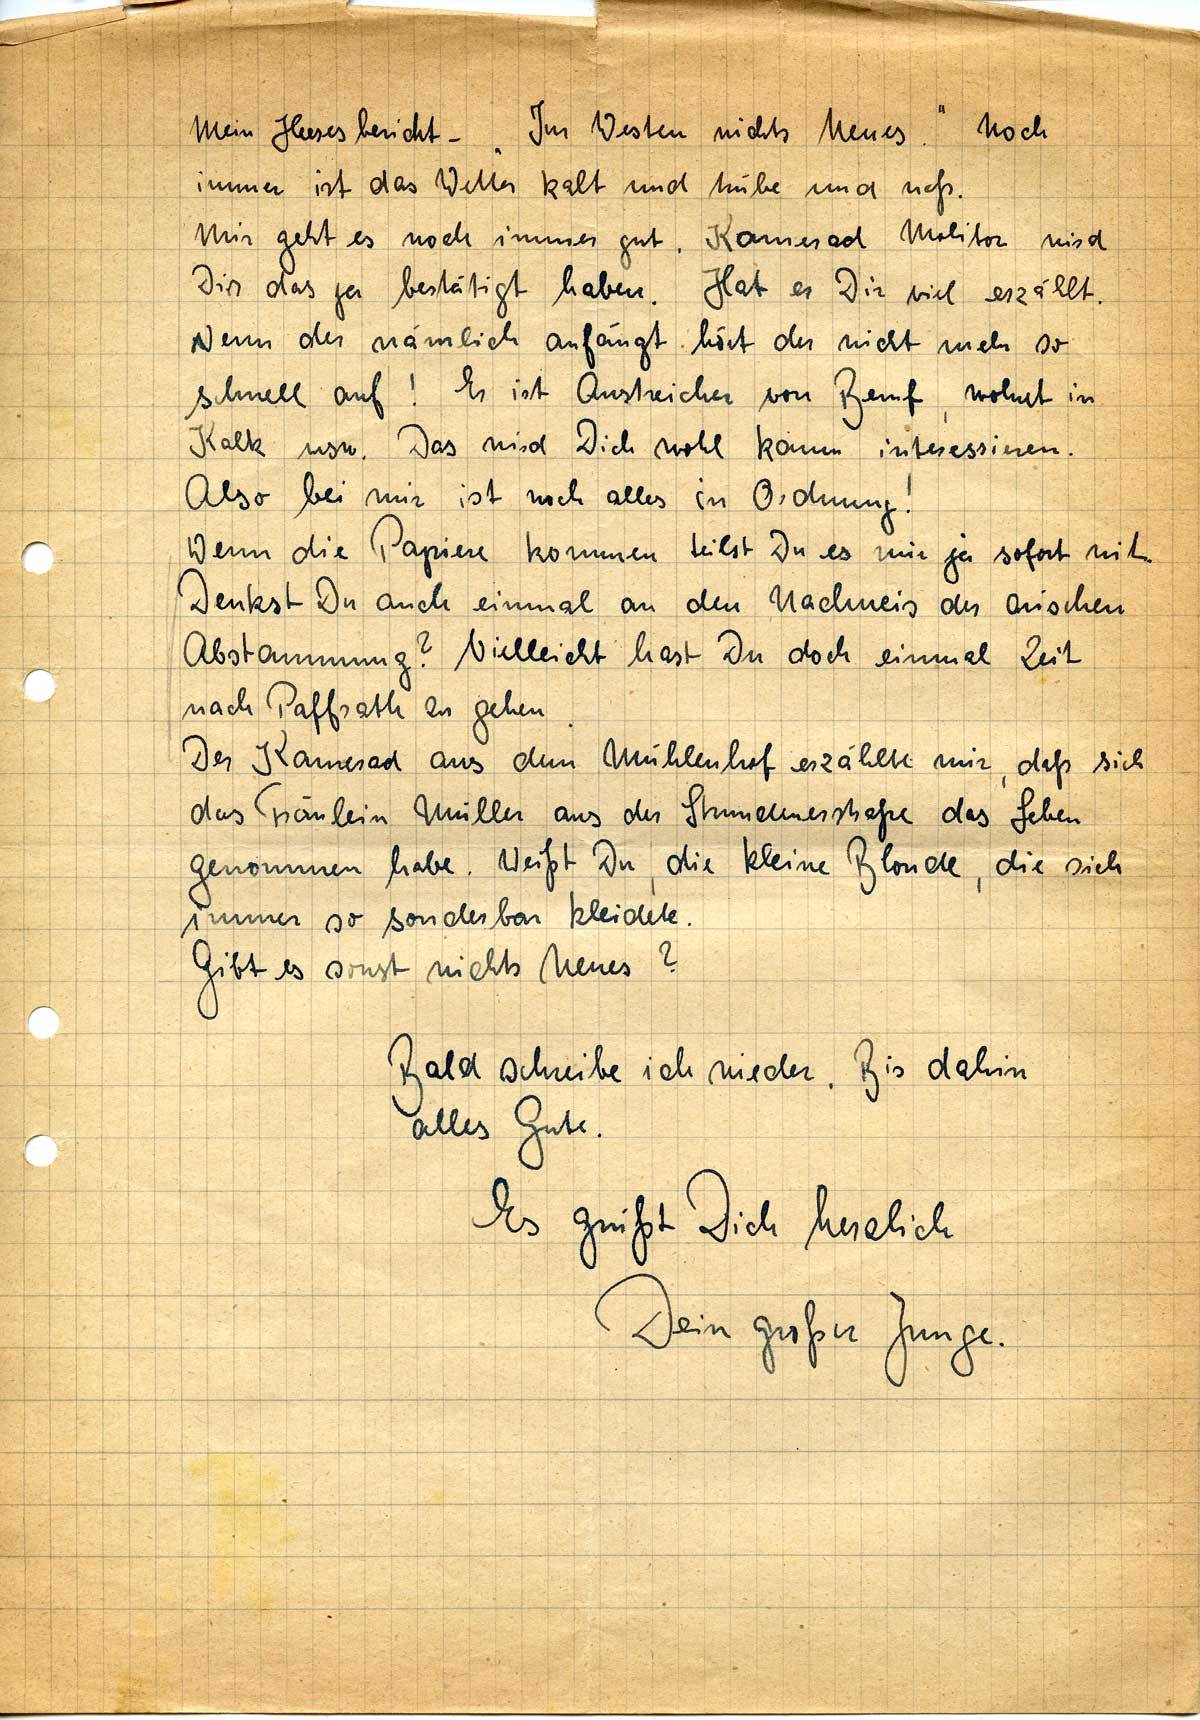 Mein Heeresbericht - „Im Westen nichts Neues." Noch
immer ist das Wetter kalt und trübe und naß.
Mir geht es noch immer gut. Kamerad Molitor wird
Dir das ja bestätigt haben. Hat er Dir viel erzählt.
Wenn der nämlich anfängt hört der nicht mehr so
schnell auf! Er ist Anstreicher von Beruf, wohnt in
Kalk usw. Das wird Dich wohl kaum interessieren.
Also bei mir ist noch alles in Ordnung!
Wenn die Papiere kommen teilst Du es mir ja sofort mit.
Denkst Du auch einmal an den Nachweis der arischen
Abstammung? Vielleicht hast Du doch einmal Zeit
nach Paffrath zu gehen.
Der Kamerad aus dem Mühlenhof erzählte mir, daß sich
das Fräulein Müller aus der Strundenerstraße das Leben
genommen habe. Weißt Du, die kleine Blonde, die sich
immer so sonderbar kleidete.
Gibt es sonst nichts Neues?
Bald schreibe ich wieder. Bis dahin
alles Gute.
Es grüßt Dich herzlich
Dein großer Junge.